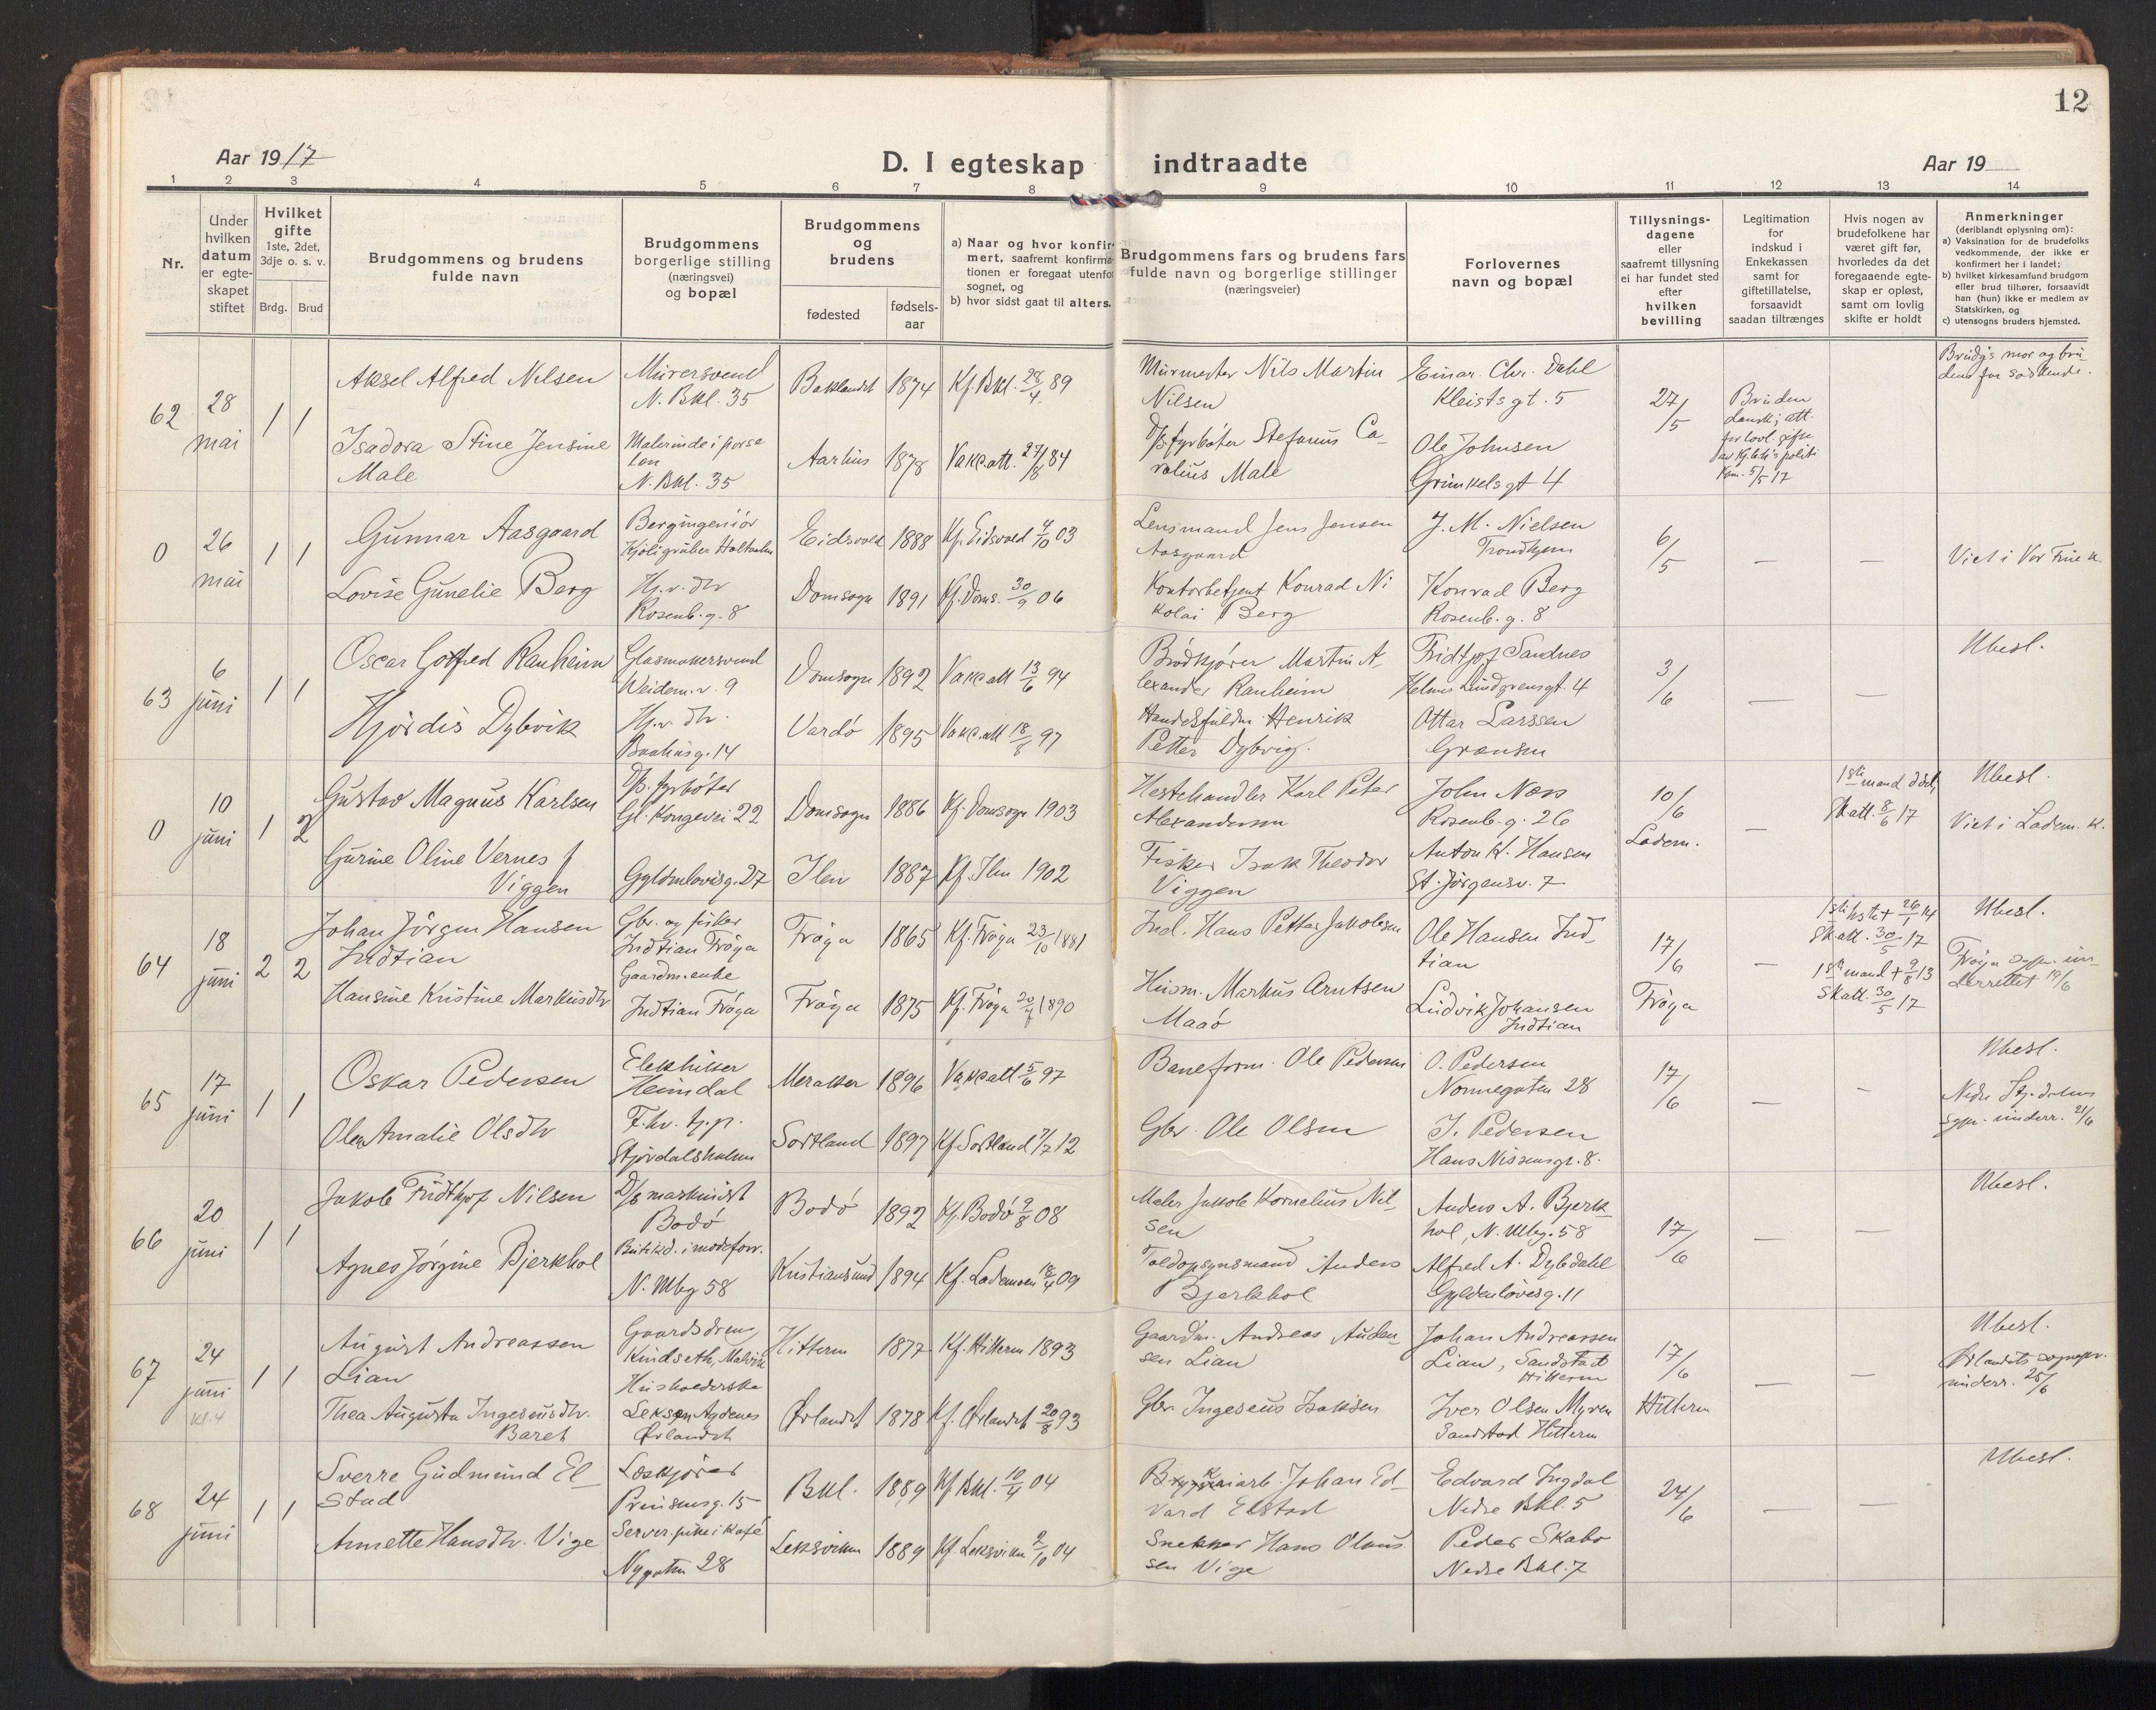 12
Aar 1917
D. I egteskap indtraadte
Aar 19
1 2 3 4 5 6 7 8 9 10 11 12 13 14
Nr.
Under
hvilken
datum
er egte-
skapet
stiftet
Hvilket
gifte
1ste, 2det,
3dje o. s. v.
Brdg. Brud
Brudgommens og brudens
fulde navn
Brudgommens
borgerlige stilling
(næringsvei)
og bopæl
Brudgommens
og
brudens
fødested
fødsels-
aar
a) Naar og hvor konfir-
mert, saafremt konfirma-
tionen er foregaat utenfor
sognet, og
b) hvor sidst gaat til alters.
Brudgommens fars og brudens fars
fulde navn og borgerlige stillinger
(næringsveier)
Forlovernes
navn og bopæl
Tillysnings-
dagene
eller
saafremt tillysning
ei har fundet sted
efter
hvilken
bevilling
Legitimation
for
indskud i
Enkekassen
samt for
giftetillatelse,
forsaavidt
saadan tiltrænges
Hvis nogen av
brudefolkene har
været gift før,
hvorledes da det
foregaaende egte-
skap er opløst,
samt om lovlig
skifte er holdt
Anmerkninger
(deriblandt oplysning om):
a) Vaksination for de brudefolks
vedkommende, der ikke er
konfirmert her i landet;
b) hvilket kirkesamfund brudgom
eller brud tilhører, forsaavidt
han (hun) ikke er medlem av
Statskirken, og
c) utensogns bruders hjemsted.
62
28
mai
1 1
Aksel Alfred Nilsen
Isadora Stine Jensine
Male
Murersvend
N. Bkl. 35
Malerinde i porse
len
N. Bkl. 35
Baklandet 1874 Kf. Bkl. 28/4 89
Aarhus 1878 Vakc.att. 27/8 84
Murmester Nils Martin
Nilsen
D/s. fyrbøter Stefanus Ca-
ralius Male
Einar Chr. Dahl
Kleistsgt. 5
Ole Johnsen
Grimkelsgt 4
27/5
Bruden
dansk; att.
for lovl. gifte
politi
5/5 17
Brudg's mor og bru-
dens far søskende.
0
26
mai
1 1
Gunnar Aasgaard
Lovise Gunelie Berg
Bergingeniør
Kjøli gruber Holtaalen
Hj.v. dtr
Rosenb. g. 8
Eidsvold 1888 Kf. Eidsvold 4/10 03
Domsogn 1891 Kf. Doms. 30/9 06
Lensmand Jens Jensen
Aasgaard
Kontorbetjent Konrad Ni
kolai Berg
J. M. Nielsen
Trondhjem
Konrad Berg
Rosenb. g. 8
6/5
— —
Viet i Vor Frue k.
63
6
juni
1 1
Oscar Gotfred Ranheim
Hjørdis Dybvik
Glasmakersvend
Weidem. v. 9
Hj.v. dtr.
Bakkeg. 14
Domsogn 1892 Vakc att 13/6 94
Vardø 1895 Vakc. att 18/8 97
Brødkjører Martin A-
lexander Ranheim
Handelsfuldm. Henrik
Petter Dybvig.
Fridtjof Sandnes
Helmer Lundgreensgt. 4
Ottar Larssen
Grænsen
3/6
— —
Ubesl.
0
10
juni
1 2
Gustav Magnus Karlsen
Gurine Oline Vernes f
Viggen
D/s. fyrbøter
Gl. Kongevei 22
Gyldenløvesg. 27
Domsogn 1886 Kf. Domsogn 1903
Ilen 1887 Kf. Ilen 1902
Hestehandler Karl Peter
Alexandersen
Fisker Isak Theodor
Viggen
John Næss
Rosenb. g. 26
Anton K. Hansen
St. Jørgensv. 7
10/6
Ladem.
—
1ste mand død,
Sk att. 8/6 17
Ubesl.
Viet i Ladem. k.
64
18
juni
2 2
Johan Jörgen Hansen
Indtian
Hansine Kristine Markusdtr
Gbr. og fisker
Indtian Frøya
Gaardm. enke
Indtian Frøya
Frøya 1865 Kf. Frøya 23/10 1881
Frøya 1875 Kf. Frøya 20/7 1890
Insl. Hans Petter Jakobsen
Husm. Markus Arntsen
Maaø
Ole Hansen Ind-
tian
Ludvik Johansen
Indtian
17/6
Frøya
—
1ste hstr + 26/1 14
Sk att. 30/5 17
1ste mand + 9/8 13
Sk att. 30/5 17
Ubesl.
Frøya sogn. un-
derrettet 19/6
65
17
juni
1 1
Oskar Pedersen
Olea Amalie Olsdtr
Elektriker
Heimdal
F. hv. tj.p.
Stjørdalshalsen
Meraker 1896 Vakc att 5/6 97
Sortland 1897 Kf. Sortland 7/7 12
Baneform. Ole Pedersen
Gbr. Ole Olsen
O. Pedersen
Nonnegaten 28
J. Pedersen
Hans Nissensgt. 8.
17/6
— —
Ubesl.
Nedre Stjørdalens
sgpr. underr. 21/6
66
20
juni
1 1
Jakob Fridthjof Nilsen
Agnes Jørgine Bjerkhol
D/s maskinist
Bodø
Butikkd. i modeforr.
N. Mbg 58
Bodø 1892 Kf. Bodø 9/8 08
Kristiansund 1894 Kf. Lademoen 18/4 09
Maler Jakob Kornelius Nil-
sen
Toldopsynsmand Anders
Bjerkhol
Anders A. Bjerk
hol, N. Mbg. 58
Alfred A. Dybdahl
Gyldenløvesg. 11
17/6
— —
Ubesl.
67
24
juni
kl. 4
1 1
August Andreassen
Lian
Thea Augusta Ingeseusdtr.
Baret
Gaardsdreng
Kindseth, Malvik
Husholderske
Leksen Agdenes
Ørlandet
Hitteren 1877 Kf. Hitteren 1893
Ørlandet 1878 Kf. Ørlandet 20/8 93
Gaardm. Andreas Auden-
sen Lian
Gbr. Ingeseus Isaksen
Johan Andreassen
Lian, Sandstad
Hitteren
Iver Olsen Myren
Sandstad Hitteren
17/6
Hitteren
— —
Ubesl.
Ørlandets sognepr.
underr. 25/6
68
24
juni
1 1
Sverre Gudmund El-
stad
Annette Hansdtr. Vige
Læskjører
Prinsensg. 15
Server. pike i kafé
Nygaten 28
Bkl. 1889 Kf Bkl. 10/4 04
Leksviken 1889 Kf. Leksviken 2/10 04
Johan Ed-
vard Elstad
Snekker Hans Olaus
sen Vige
Edvard Ingdal
Nedre Bkl. 5
Peder Skabo
Nedre Bkl. 7
24/6
— —
Ubesl.